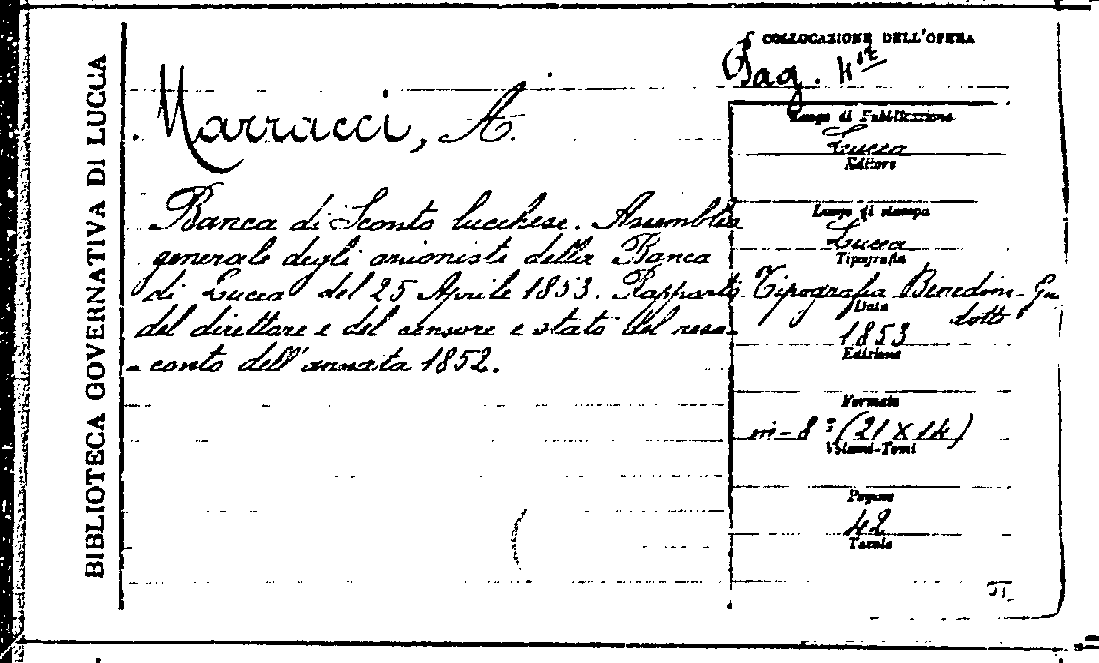 BIBLIOTECA GOVERNATIVA DI LUCCA
COLLOCAZIONE DELL'OPERA
Marracci, A.
Banca di Sconto lucchese. Assemblea
generale degli azionisti della Banca
di Lucca del 25 Aprile 1853. Rapporto
del direttore e del censore e stato del reso-
-conto dell'annata 1852.
Luogo di Pubblicazione
Lucca
Editore
Luogo di stampa
Lucca
Tipografia
Tipografia Benedini-Gui
dotti
Data
1853
Edizione
Formato
in-8° (21 X 14)
Volumi-Tomi
Pagine
42
Tavole